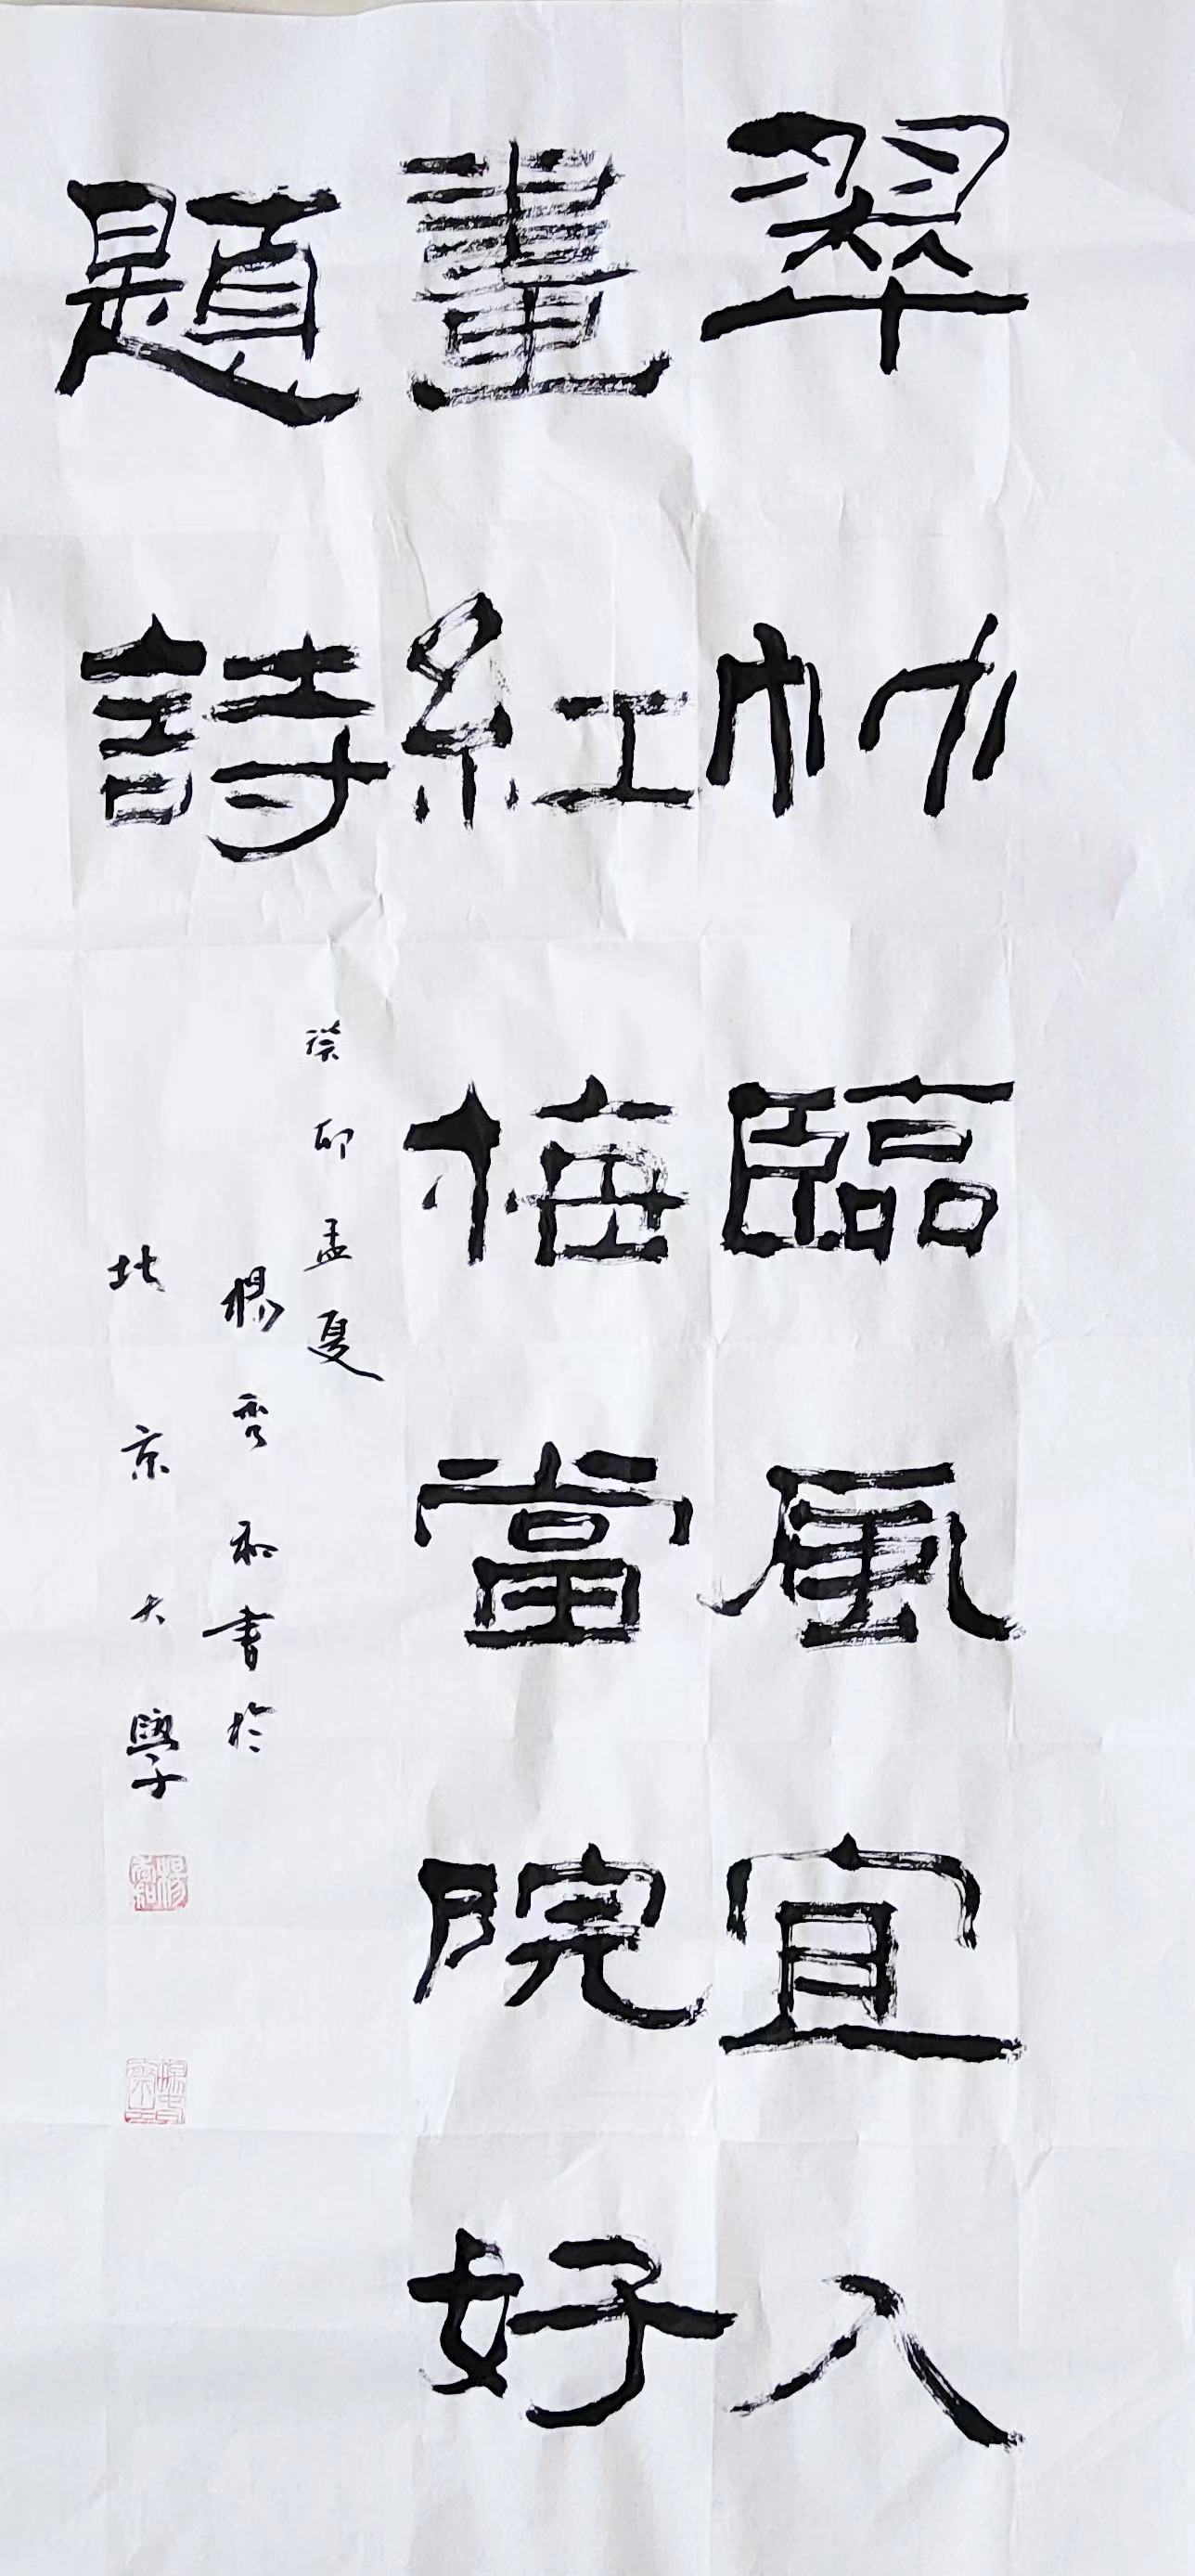 翠竹臨風宜入
畫紅梅當院好
題詩
癸卯孟夏
楊秀和書於
北京大學